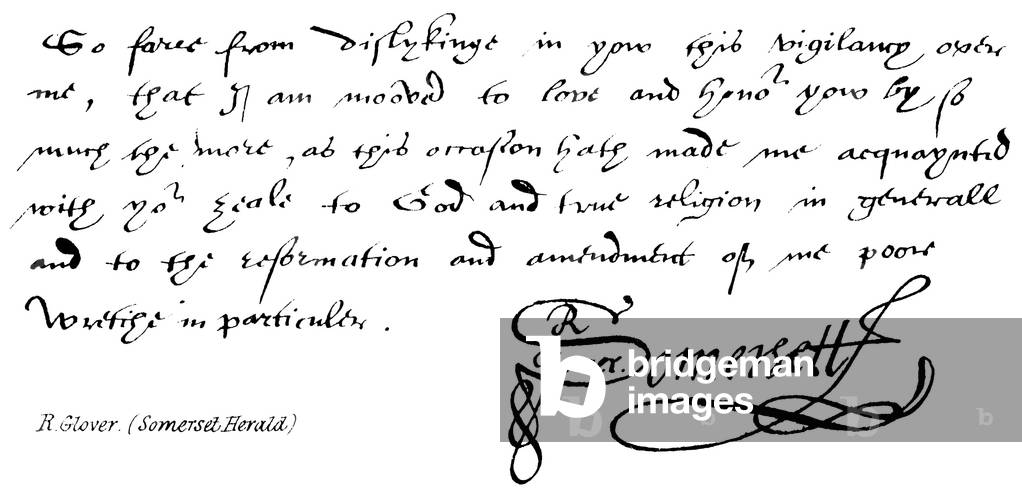 So farre from dislykinge in yow this vigilancy over
me, that I am mooved to love and honor yow by so
much the more, as this occasion hath made me acquaynted
with yor zeale to God and true religion in generall
and to the reformation and amendment off me poore
Wretche in particuler.
R
Somersett
bridgeman
images
R. Glover. (Somerset Herald)